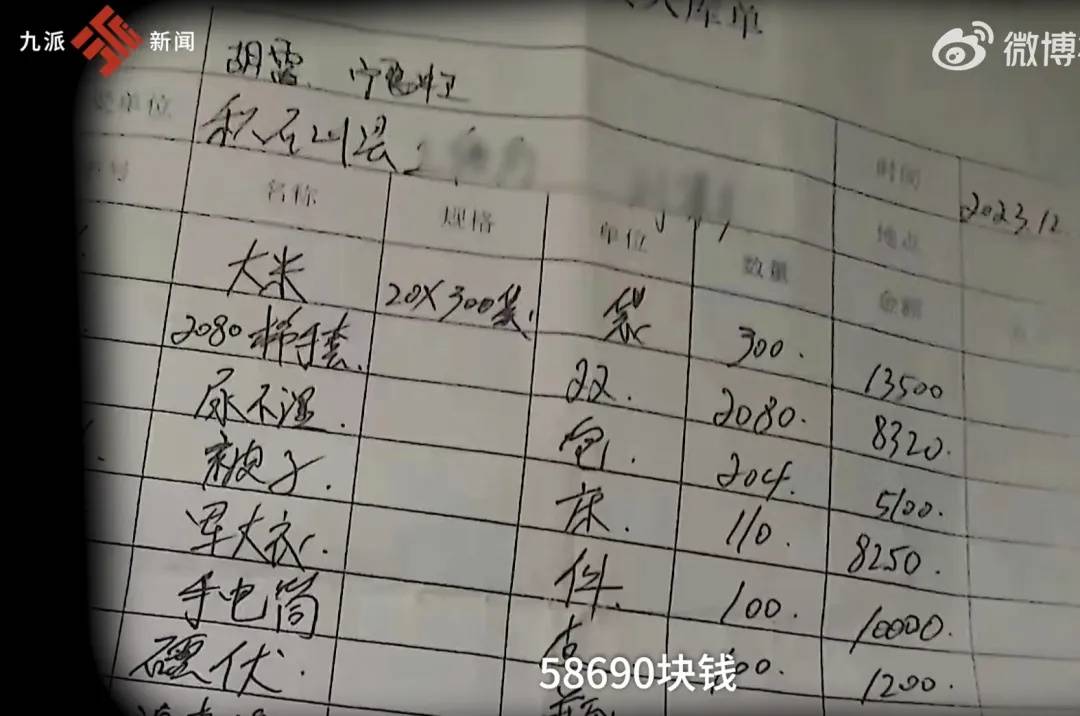 九派 新闻
微博
库单
胡雷 宁
单位 积石山县 时间 2023.12
号 名称 规格 单位 数量 金额 地点
大米 20X300袋 袋 300. 13500
2080 手套. 22. 2080. 8320.
尿不湿. 包. 204. 5100.
被子. 床. 110. 8250.
军大衣. 件. 100. 10000.
手电筒 1200.
伏.
58690块钱